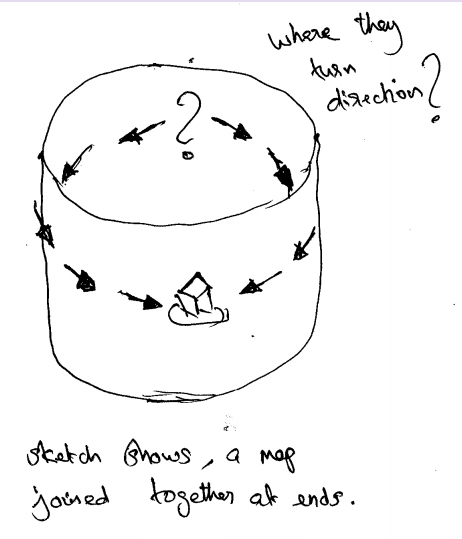 where they
turn
direction?
?
sketch shows, a map
joined together at ends.